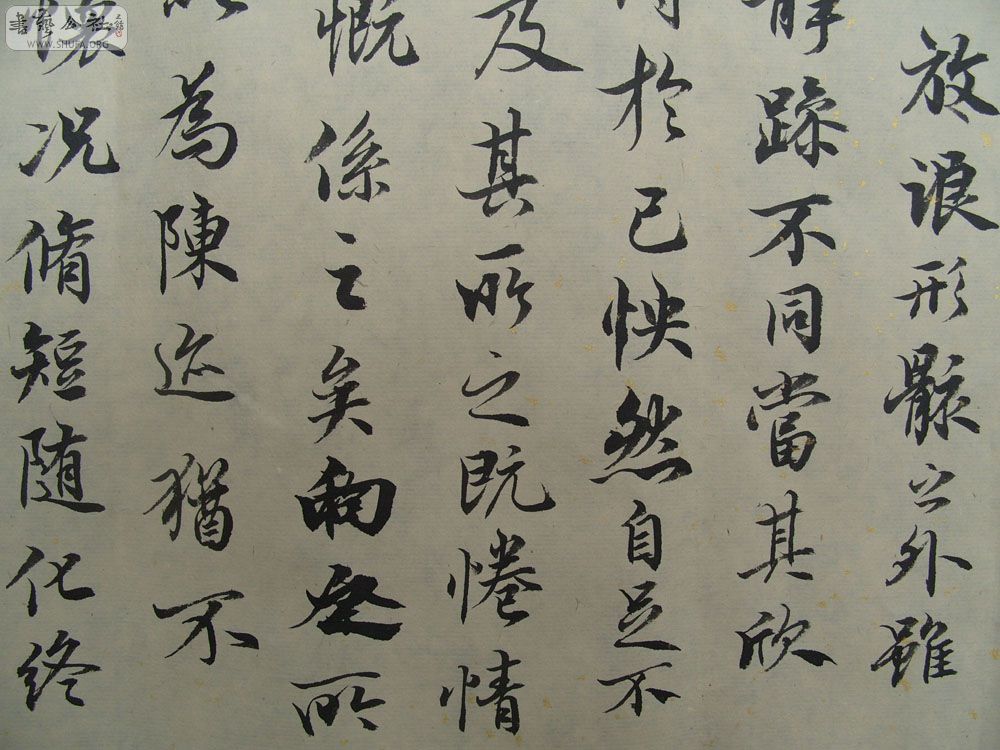 放浪形骸之外雖
静躁不同當其欣
於己怏然自足不
及其所之既惓情
慨係之矣向之所
為陳迹猶不
懷況脩短随化終
書藝公社
WWW.SHUFA.ORG